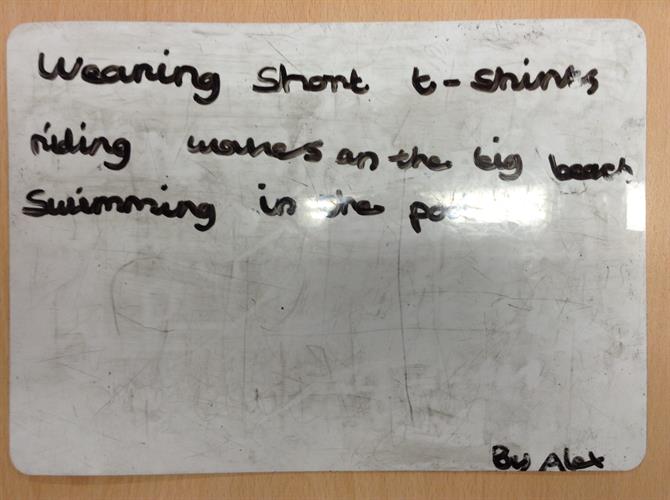 Wearing Short t-shirts
riding waves on the big beach
Swimming in the
By Alex